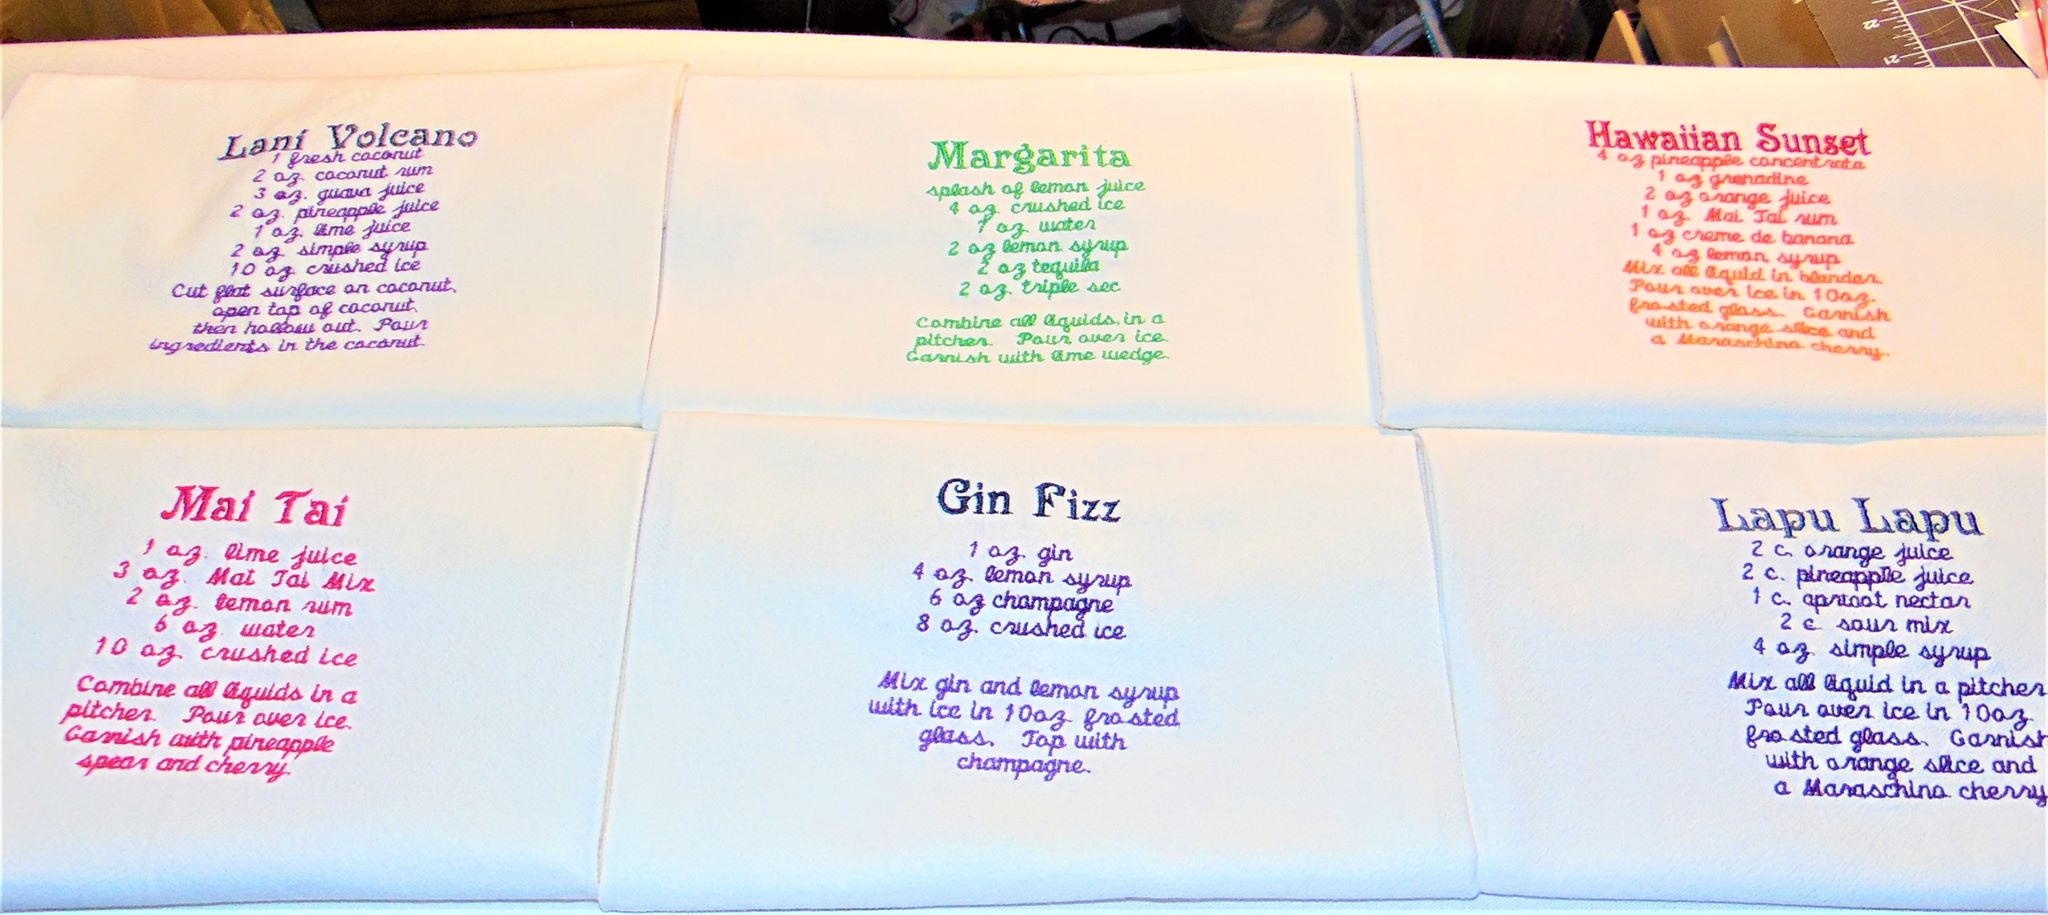 Lani Volcano
1 fresh coconut
2 oz. coconut rum
3 oz. guava juice
2 oz. pineapple juice
1 oz. lime juice
2 oz. simple syrup
10 oz. crushed ice
Cut flat surface on coconut,
open top of coconut,
then hollow out. Pour
ingredients in the coconut.
Margarita
splash of lemon juice
4 oz. crushed ice
1 oz. water
2 oz lemon syrup
2 oz tequila
2 oz. triple sec
Combine all liquids in a
pitcher. Pour over ice.
Garnish with lime wedge.
Hawaiian Sunset
4 oz pineapple concentrate
1 oz grenadine
2 oz orange juice
1 oz. Mai Tai rum
1 oz creme de banana
4 oz lemon syrup
Mix all liquid in blender.
Pour over ice in 10oz.
frosted glass. Garnish
with orange slice and
a Maraschino cherry.
Mai Tai
1 oz. lime juice
3 oz. Mai Tai Mix
2 oz. lemon rum
6 oz. water
10 oz. crushed ice
Combine all liquids in a
pitcher. Pour over ice.
Garnish with pineapple
spear and cherry.
Gin Fizz
1 oz. gin
4 oz. lemon syrup
6 oz champagne
8 oz. crushed ice
Mix gin and lemon syrup
with ice in 10oz. frosted
glass. Top with
champagne.
Lapu Lapu
2 c. orange juice
2 c. pineapple juice
1 c. apricot nectar
2 c. sour mix
4 oz. simple syrup
Mix all liquid in a pitcher
Pour over ice in 10oz.
frosted glass. Garnish
with orange slice and
a Maraschino cherry
22
21